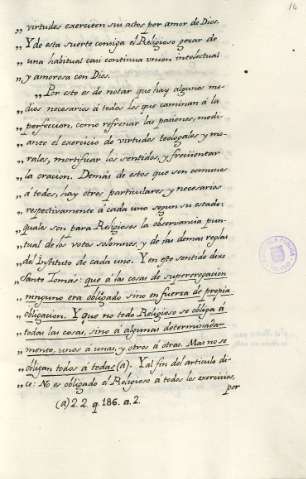 14
„ virtudes exerciten sus actos por amor de Dios.
„ Y de esta suerte consiga el Religioso gozar de
„ una habitual casi continua union intelectual
„ y amorosa con Dios.
„ Por esto es de notar que hay algunos me-
„ dios necesarios á todos los que caminan á la
„ perfeccion, como refrenar las pasiones, medi-
„ ante el exercicio de virtudes teologales y mo-
„ rales, mortificar los sentidos, y freqüentar
„ la oracion. Demás de estos que son comunes
„ á todos, hay otros particulares, y necesarios
„ respectivamente á cada uno segun su estado:
„ quales son para Religiosos la observancia pun-
„ tual de los votos solemnes, y de las demas reglas
„ de Instituto de cada uno. Y en este sentido dixo
„ Santo Tomas: que á las cosas de supererogacion
„ ninguno era obligado sino en fuerza de propia
„ obligacion. Y que no todo Religioso se obliga á
„ todas las cosas, sino á algunas determinada-
„ mente, unos á unas, y otros á otras. Mas no se
„ obligan todos á todas (a). Y al fin del articulo di-
„ ce: No es obligado el Religioso á todos los exercicios,
por
(a) 2. 2. q. 186. a. 2.